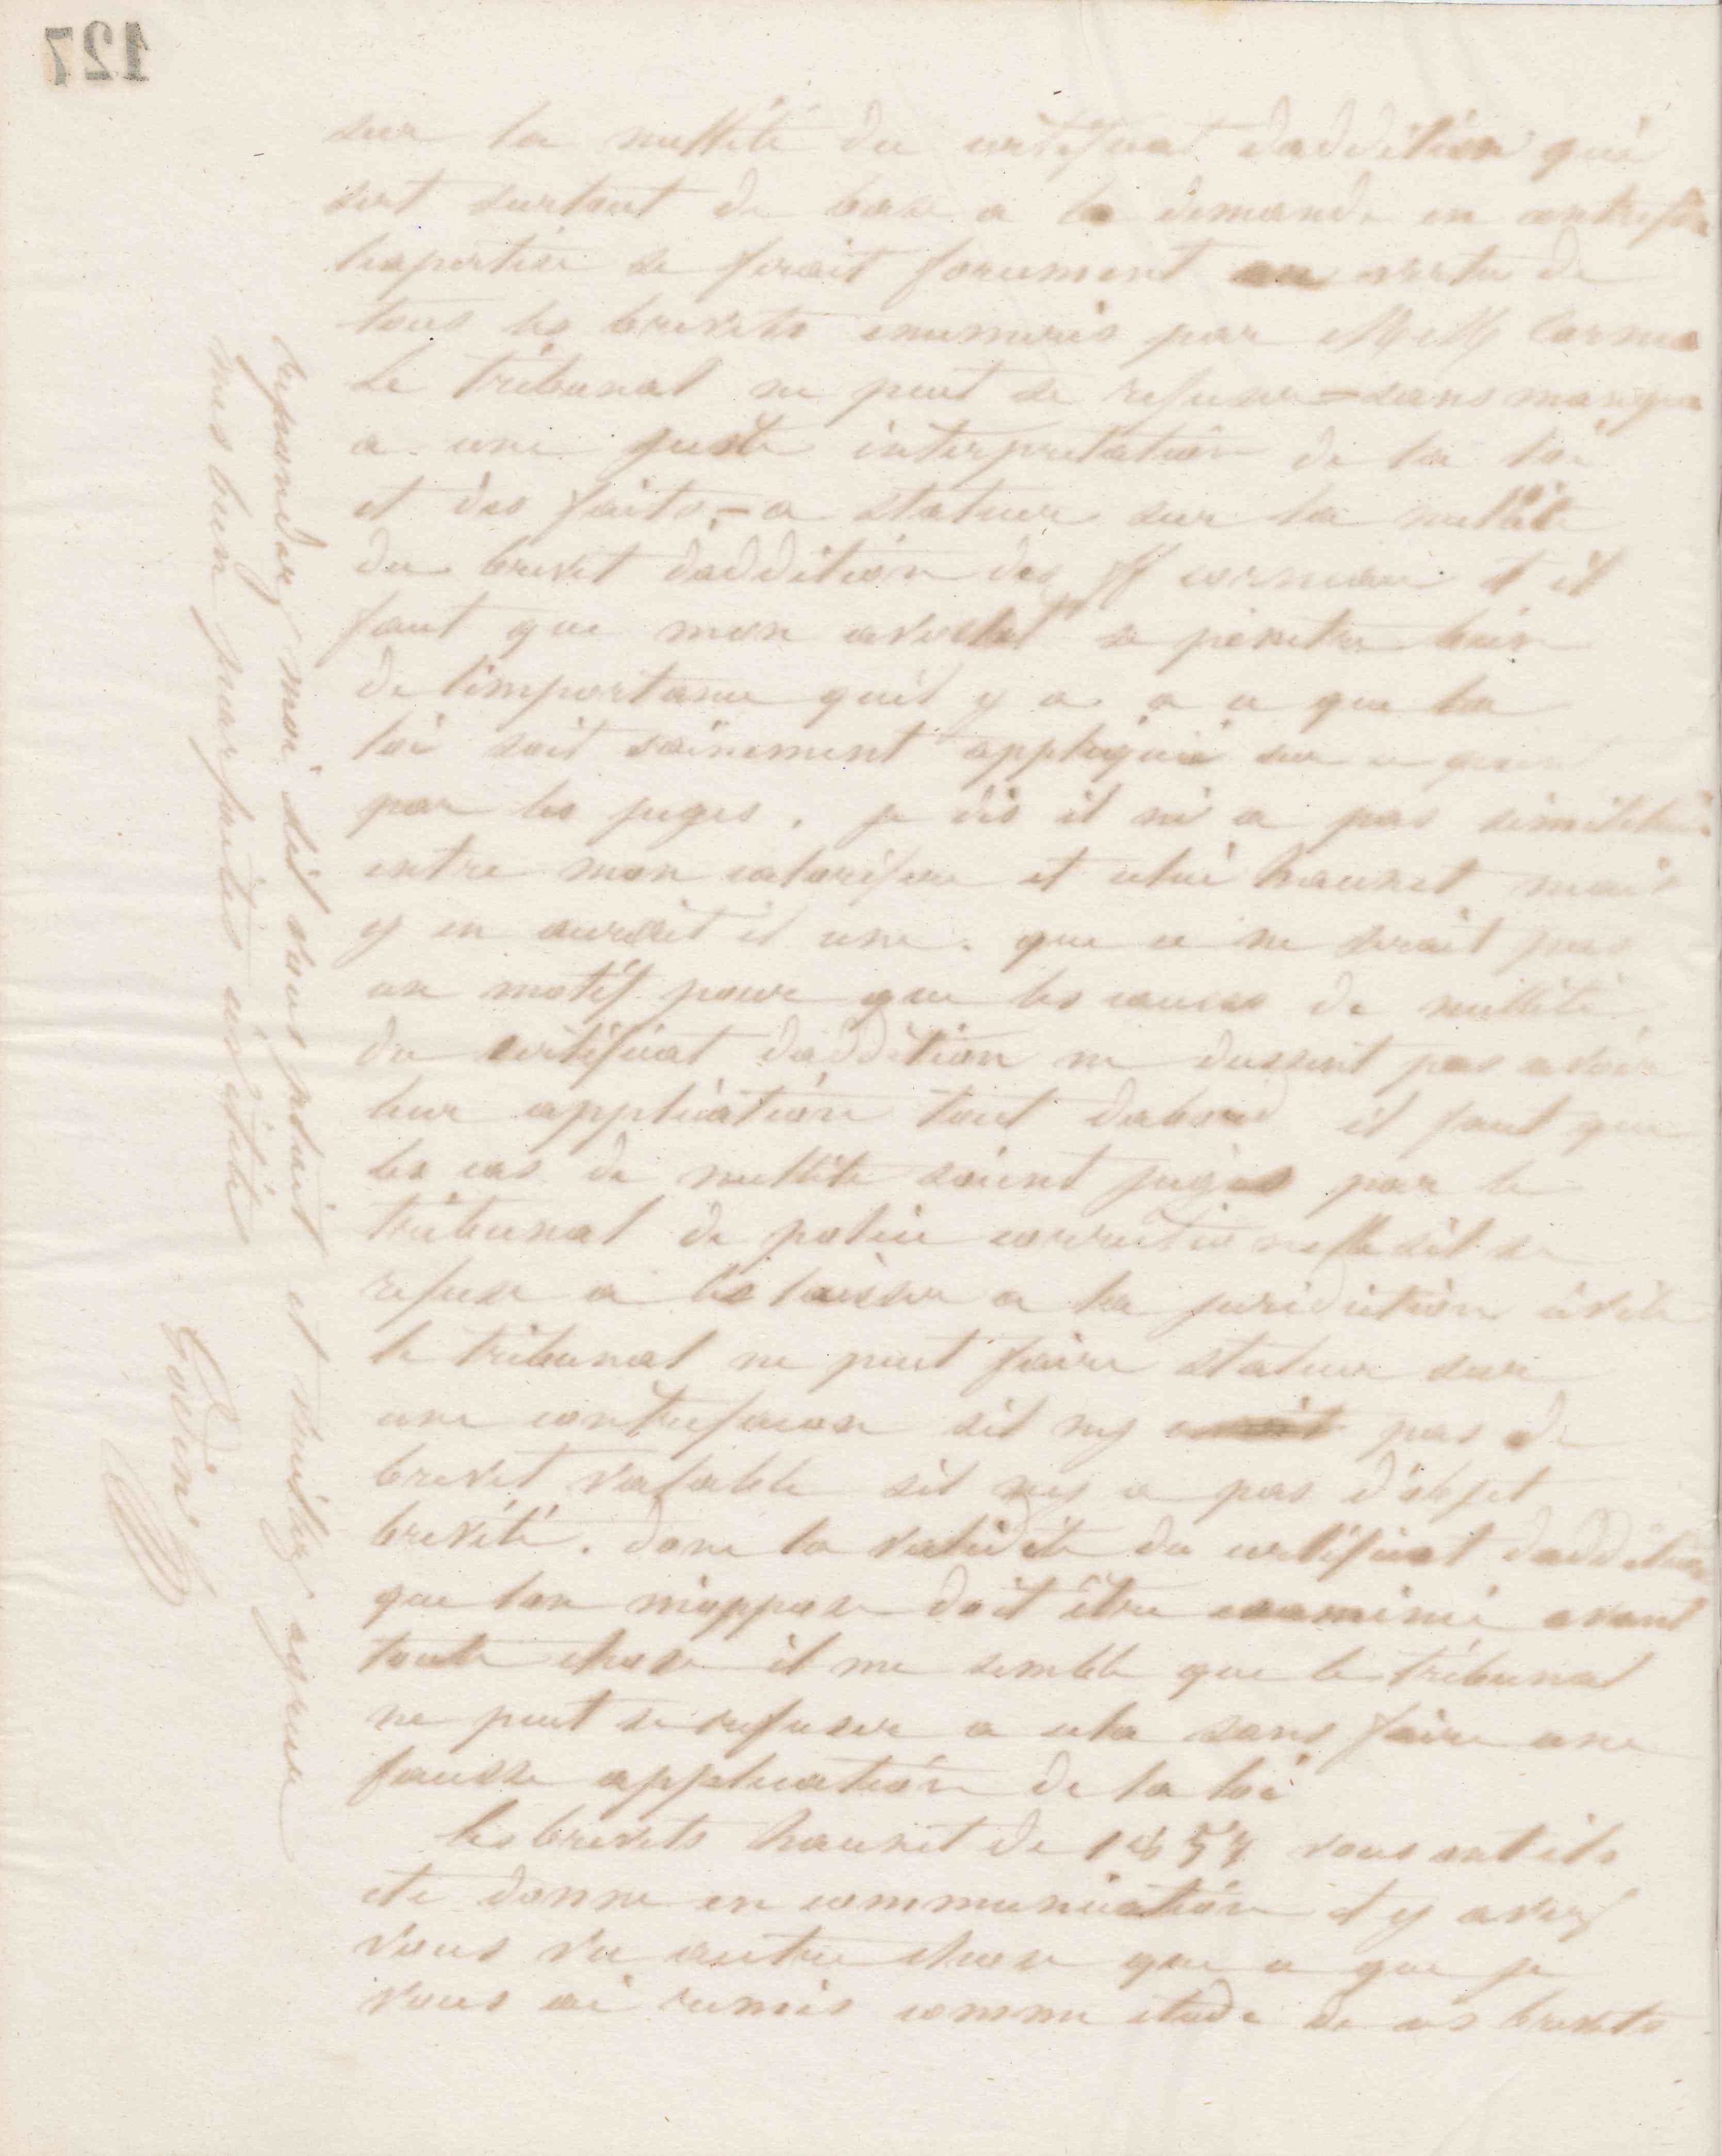 127
sur la nullité du certificat daddition qui
sert surtout de base a la demande en contrefa
lexpertise se ferait forcement en vertu de
tous les brevets enumeris par MM Cornea
Le tribunal ne peut se refuser – sans manquer
a une juste interpretation de la loi
et des faits, – a statuer sur la nullité
du brevet daddition des ff corneau et il
faut que mon avocat se penetre bien
de limportance quil y a a ce que la
loi soit sainement appliquée sur ce point
par les juges. je dis il ni a pas similitude
entre mon calorifere et celui haurret mais
y en aurait il une. que ce ne serait pas
un motif pour que les causes de nullité
du certificat daddition ne dussent pas avoir
leur application tout dabord il faut que
les cas de nullité soient jugés par le
tribunal de police correctionelle sil se
refuse a les laisser a la juridiction civile
le tribunal ne peut faire statuer sur
une contrefacon sil ny a pas de
brevet valable sil ny a pas d'objet
breveté. donc la validité du certificat daddition
que lon moppose doit être examiné avant
toute chose il me semble que le tribunal
ne peut se refuser a cela sans faire une
fausse application de la loi
les brevets haurret de 1857 vous ont ils
ete donne en communication et y avez
vous vu autre chose que ce que je
vous ai remis comme etude de ces brevets
repondez moi sil vous plait et veuillez agreer
mes bien parfaites civilités
Godin